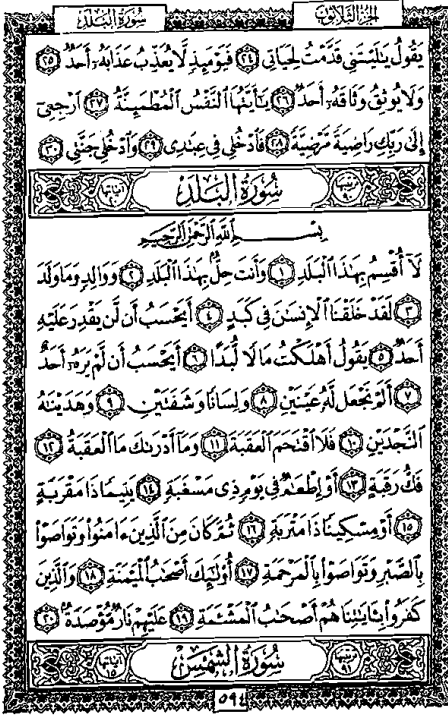 الجزء الثلاثون
سورة البلد
يَقُولُ يَٰلَيْتَنِى قَدَّمْتُ لِحَيَاتِى ٢٤ فَيَوْمَئِذٍ لَّا يُعَذِّبُ عَذَابَهُۥٓ أَحَدٌ ٢٥
وَلَا يُوثِقُ وَثَاقَهُۥٓ أَحَدٌ ٢٦ يَٰٓأَيَّتُهَا ٱلنَّفْسُ ٱلْمُطْمَئِنَّةُ ٢٧ ٱرْجِعِىٓ
إِلَىٰ رَبِّكِ رَاضِيَةً مَّرْضِيَّةً ٢٨ فَٱدْخُلِى فِى عِبَٰدِى ٢٩ وَٱدْخُلِى جَنَّتِى ٣٠
سُورَةُ الْبَلَدِ
بِسْمِ ٱللَّهِ ٱلرَّحْمَٰنِ ٱلرَّحِيمِ
لَآ أُقْسِمُ بِهَٰذَا ٱلْبَلَدِ ١ وَأَنتَ حِلٌّۢ بِهَٰذَا ٱلْبَلَدِ ٢ وَوَالِدٍ وَمَا وَلَدَ
٣ لَقَدْ خَلَقْنَا ٱلْإِنسَٰنَ فِى كَبَدٍ ٤ أَيَحْسَبُ أَن لَّن يَقْدِرَ عَلَيْهِ
أَحَدٌ ٥ يَقُولُ أَهْلَكْتُ مَالًا لُّبَدًا ٦ أَيَحْسَبُ أَن لَّمْ يَرَهُۥٓ أَحَدٌ
٧ أَلَمْ نَجْعَل لَّهُۥ عَيْنَيْنِ ٨ وَلِسَانًا وَشَفَتَيْنِ ٩ وَهَدَيْنَٰهُ
ٱلنَّجْدَيْنِ ١٠ فَلَا ٱقْتَحَمَ ٱلْعَقَبَةَ ١١ وَمَآ أَدْرَىٰكَ مَا ٱلْعَقَبَةُ ١٢
فَكُّ رَقَبَةٍ ١٣ أَوْ إِطْعَٰمٌ فِى يَوْمٍ ذِى مَسْغَبَةٍ ١٤ يَتِيمًا ذَا مَقْرَبَةٍ
١٥ أَوْ مِسْكِينًا ذَا مَتْرَبَةٍ ١٦ ثُمَّ كَانَ مِنَ ٱلَّذِينَ ءَامَنُوا۟ وَتَوَاصَوْا۟
بِٱلصَّبْرِ وَتَوَاصَوْا۟ بِٱلْمَرْحَمَةِ ١٧ أُو۟لَٰٓئِكَ أَصْحَٰبُ ٱلْمَيْمَنَةِ ١٨ وَٱلَّذِينَ
كَفَرُوا۟ بِـَٔايَٰتِنَا هُمْ أَصْحَٰبُ ٱلْمَشْـَٔمَةِ ١٩ عَلَيْهِمْ نَارٌ مُّؤْصَدَةٌۢ ٢٠
سُورَةُ الشَّمْسِ
٥٩٤